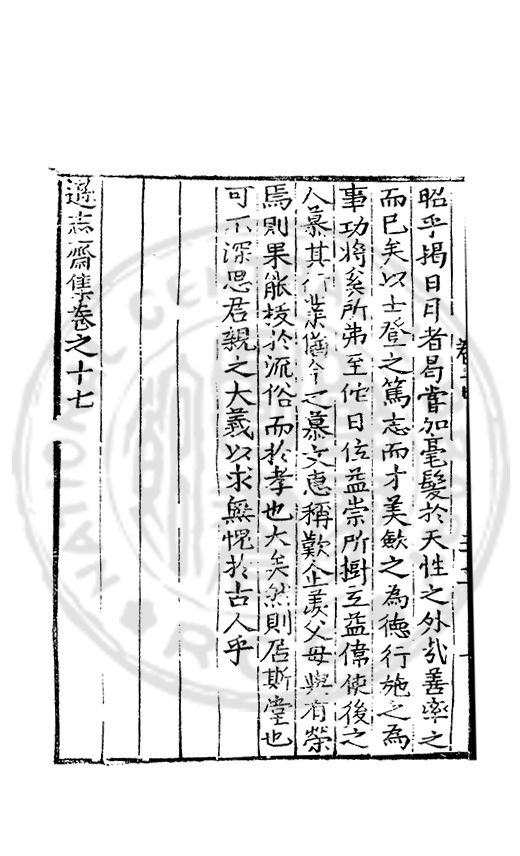 昭乎揭日月者曷嘗加毫髮於天性之外哉善率之
而已矣以士登之篤志而才美歛之為德行施之為
事功將奚所弗至佗日位益崇所樹立益偉使後之
人慕其行業猶今之慕文惠稱歎企羨父母與有榮
焉則果能拔於流俗而於孝也大矣然則居斯堂也
可不深思君親之大義以求無愧於古人乎
遜志齋集卷之十七